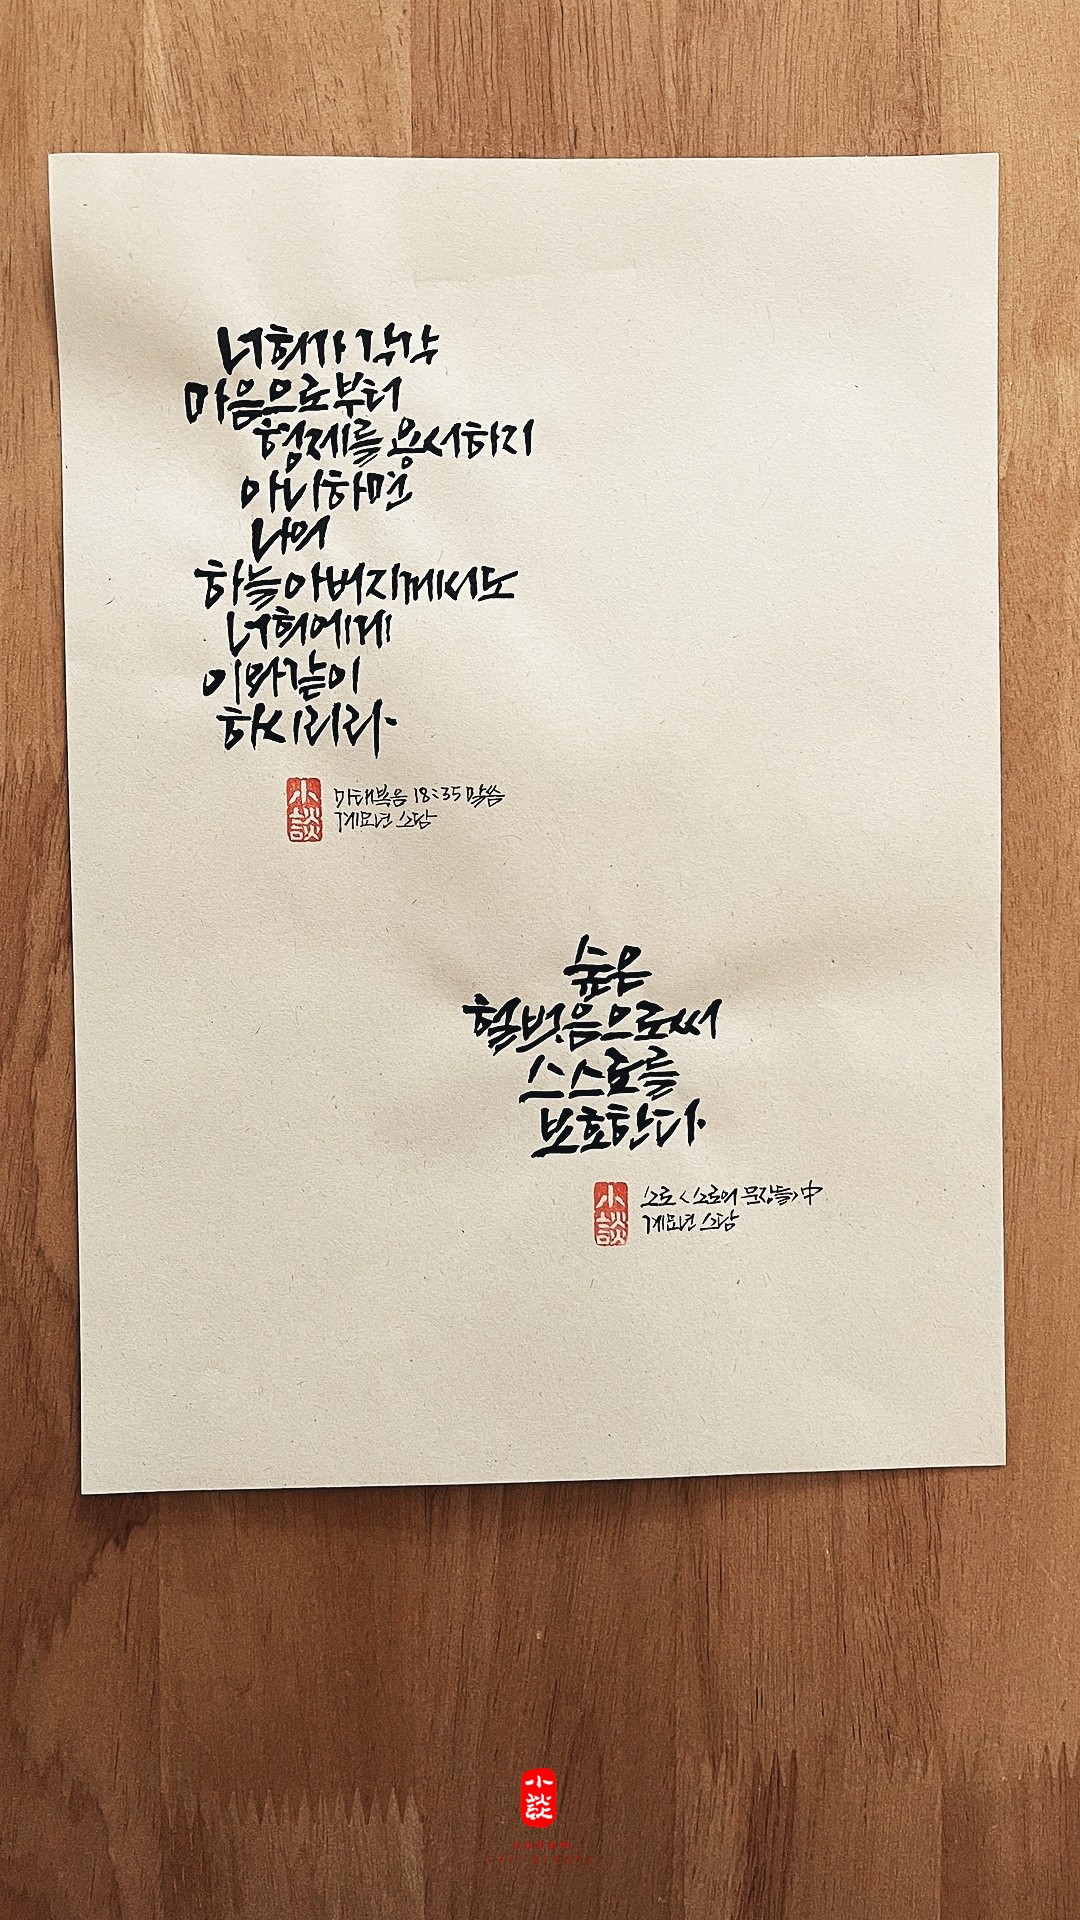 너희가 각각
마음으로부터
형제를 용서하지
아니하면
나의
하늘아버지께서도
너희에게
이와같이
하시리라.
小談
마태복음 18:35 말씀
계묘년 소담
숲은
헐벗음으로써
스스로를
보호한다.
小談
소로 <소로의 문장들> 中
계묘년 소담
小談